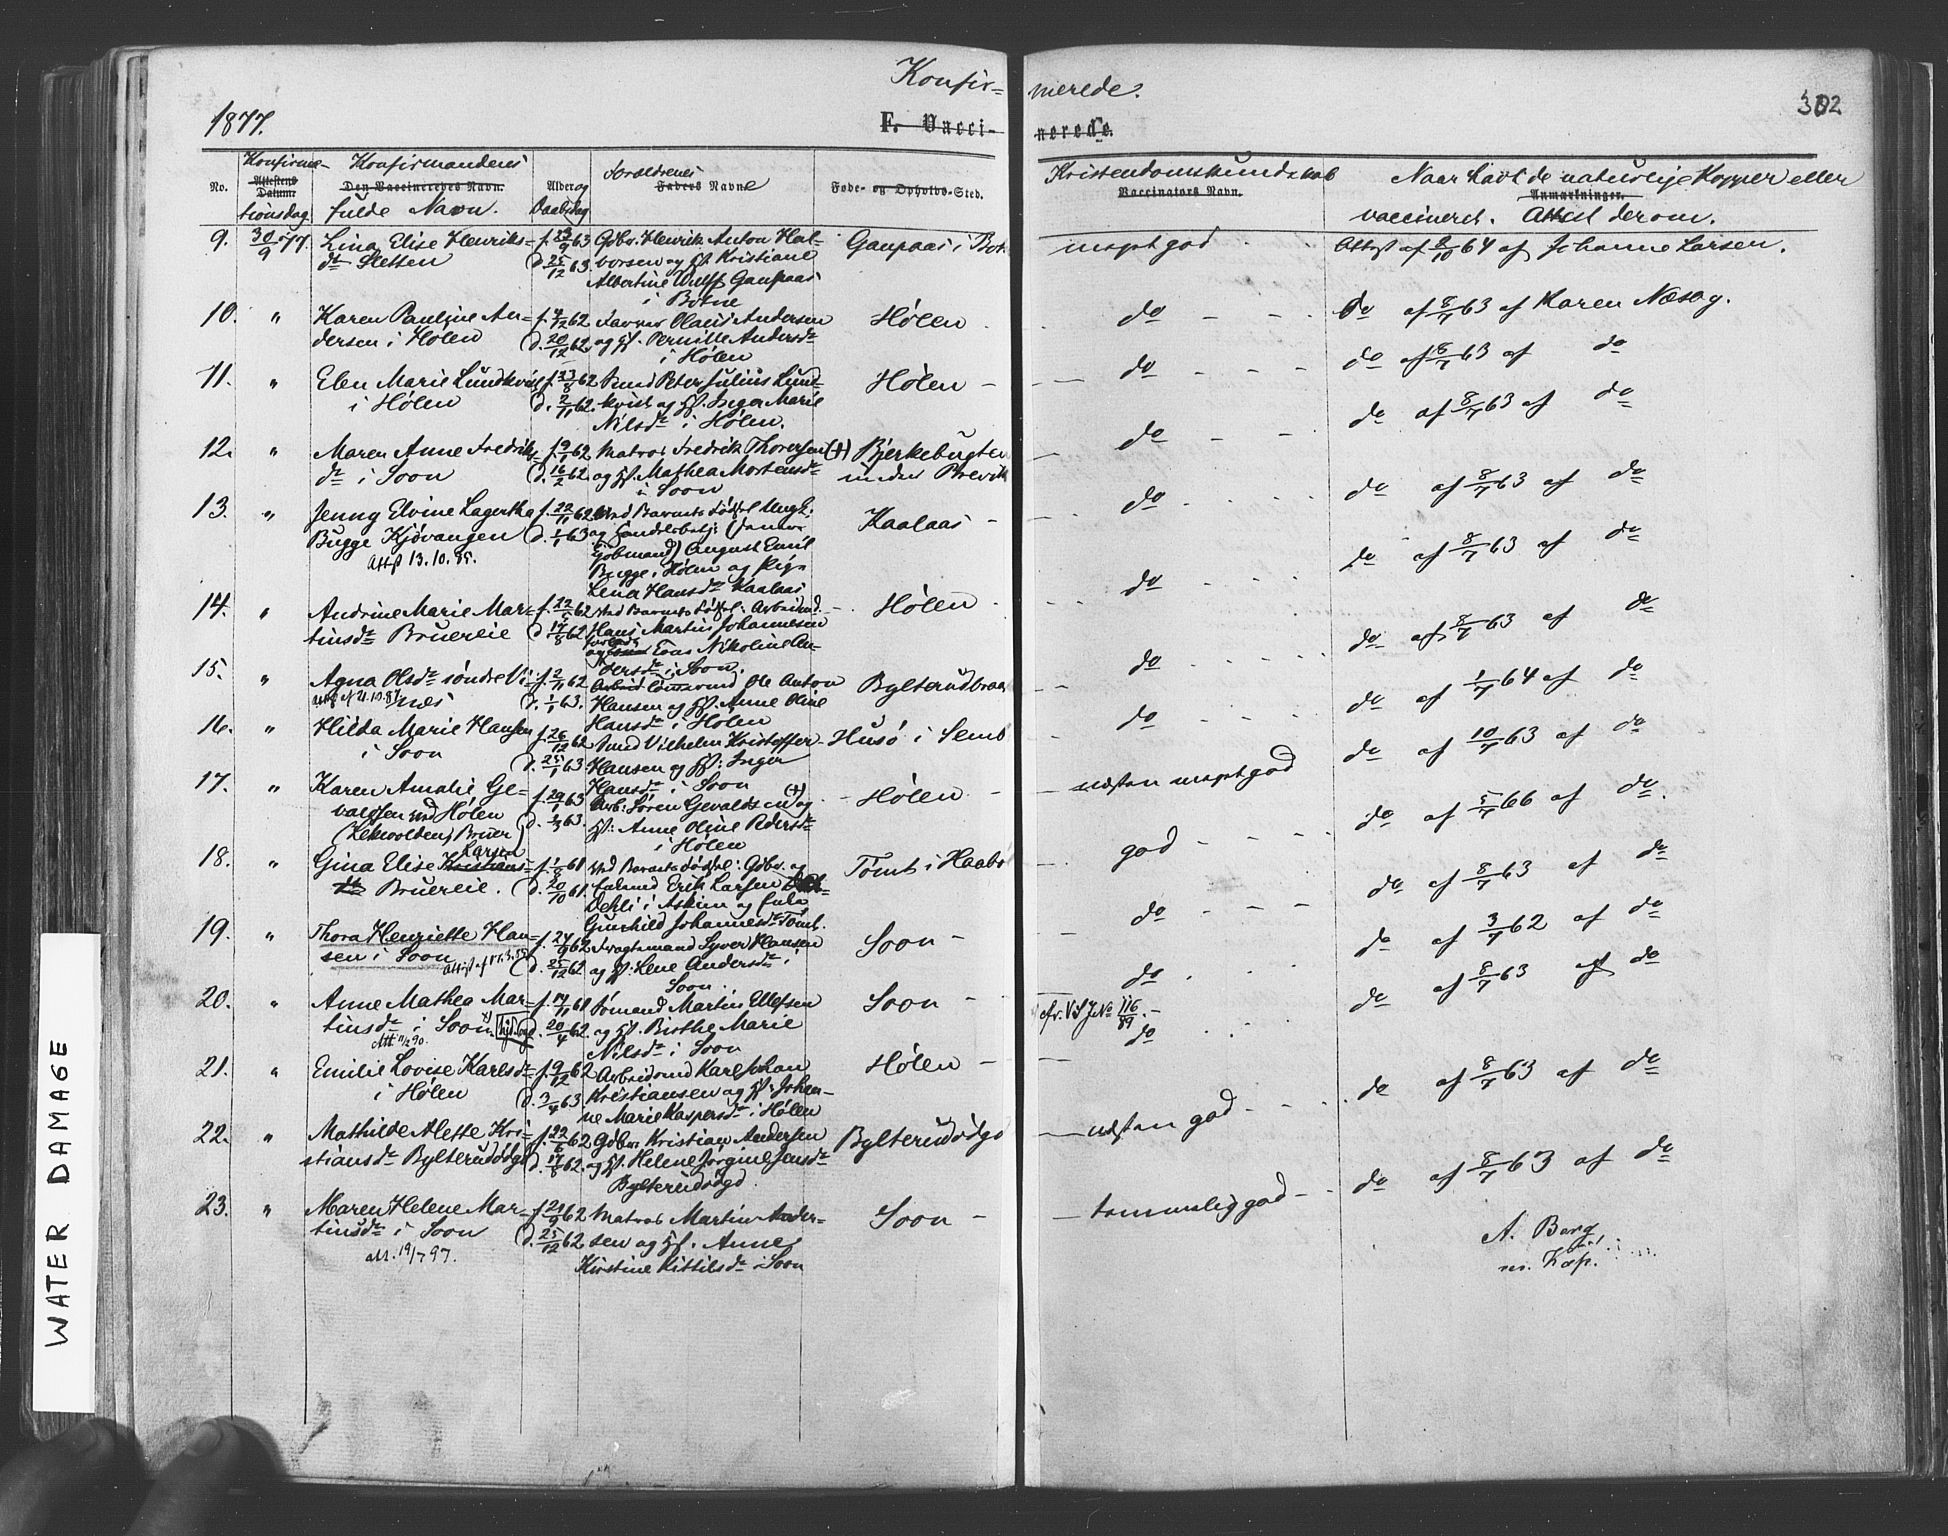 Konfir=
merede.
302
1877.
F. Vacci-
nerede.
Konfirma-
Konfirmandens
Forældrenes
Kristendomskundskab
Naar havt de naturlige Kopper eller
No.
Attestens Datum.
Den Vaccineredes Navn.
Alder og
Faders Navne
Føde- og Opholds-Sted.
Vaccinators Navn.
Anmærkninger.
tionsdag
fulde Navn.
Daabsdag
vaccineret. Attest derom.
9. 30/9 77. Lina Elise Henriks- f. 23/9 63 Gdbr. Henrik Anton Hal- Gaupaas i Botn
dr Sletten d. 25/12 63. vorsen og Kristiane
Albertine Wulff Gaupaas
i Botne
meget god Attest af 2/10 64 af Johanne Larsen.
10. " Karen Pauline An- f. 4/12 62 Olaus Andersen Hølen
dersen i Hølen d. 20/12 62. og Pernille Andersdr
i Hølen
do do af 8/7 63 af Karen Næsby.
11. " Elen Marie Lundkvist f. 23/8 62 Smed Peter Julius Lund- Hølen
i Hølen d. 2/11 62. kvist og Inger Marie
Nilsdr i Hølen.
do do af 8/7 63 af do
12. " Maren Anne Fredriks f. 9/1 62 Matros Fredrik Thoresen (+) Bjerkebugten
dr i Soon d. 16/2 62. og Mathea Mortensdr under Brevik
i Soon
do do af 8/7 63 af do
13. " Jenny Elvine Lagertha f. 22/11 62
Bugge Kjøvangen d. 1/1 63
Attst 13.10.85.
ved Barnets Fødsel Ungk.
og Handelsbetj:
Gdbmand) August Emil
Bugge i Hølen og Pige
Lena Hansdr Kaalaas
Kaalaas
do do af 8/7 63 af do
14. " Andrine Marie Mar- f. 22/6 62 ved Barnets Fødsel: Arbeidsmd. Hølen
tinsdr Bruereie d. 17/8 62 Hans Martin Johannesen
og Eva Nikoline An-
dersdr i Soon.
do do af 8/7 63 af do
15. " Agna Olsdr søndre Vi- f. 2/11 62 Ole Anton Bylterudbraa
nes d. 1/1 63. Hansen og Anne Oline
Hansdr i Hølen
do do af 8/7 63 af do
16. " Hilda Marie Hansen f. 26/12 62 Smed Vilhelm Kristoffer Husø i Semb
i Soon d. 25/1 63 Hansen og Inger
Hansdr i Soon
do do af 1/7 64 af do
17. " Karen Amalie Ge- f. 29/1 63 Arb: Søren Gevaldsen (+) og Hølen
valdsen ved Hølen d. 1/3 63. Anne Oline Pedersdr
i Hølen
næsten meget god do af 10/7 63 af do
18. " Gina Elise Kristians- Larsen f. 1/8 61 ved Barnets Fødsel: Gdbr. og Tomt i Haabøl
dr Bruereie. d. 20/10 61. Erik Larsen
Dehli i Askim og Enke
Gunhild Johannesdr Tomt.
god do af 5/7 66 af do.
19. " Thora Henriette Han- f. 24/9 62 Fragtemand Syver Hansen Soon
sen i Soon d. 25/12 62 og Lene Andersdr i
Soon.
do do af 8/7 63 af do
20. " Anne Mathea Mar- f. 17/11 61 Sømand Martin Ellefsen Soon
tinsdr i Soon d. 20/4 62. og Birthe Marie
Att 11/2 90. Nilsdr i Soon
JNo 116/89.
do do af 3/7 62 af do
21. " Emilie Lovise Karlsdr f. 9/12 62 Arbeidsmd Karl Johan Hølen
i Hølen d. 3/4 63 Kristiansen og Johan-
ne Marie Kaspersdr i Hølen
do af 8/7 63 af do
22. " Mathilde Alette Kri- f. 22/6 62 Gdbr. Kristian Andersen Bylterudødgd
stiansdr Bylterudødgd d. 17/8 62. og Helene Jørgine Jensdr
Bylterudødgd.
næsten god do af 8/7 63 af do
23. " Maren Helene Mar- f. 21/9 62 Matros Martin Ander- Soon
tinsdr i Soon d. 25/12 62. sen og Anne
att. 19/7 97. Kirstine Kittilsdr i Soon
temmelig god do af 8/7 63 af do
A. Berg
m. Kap.
WATER DAMAGE